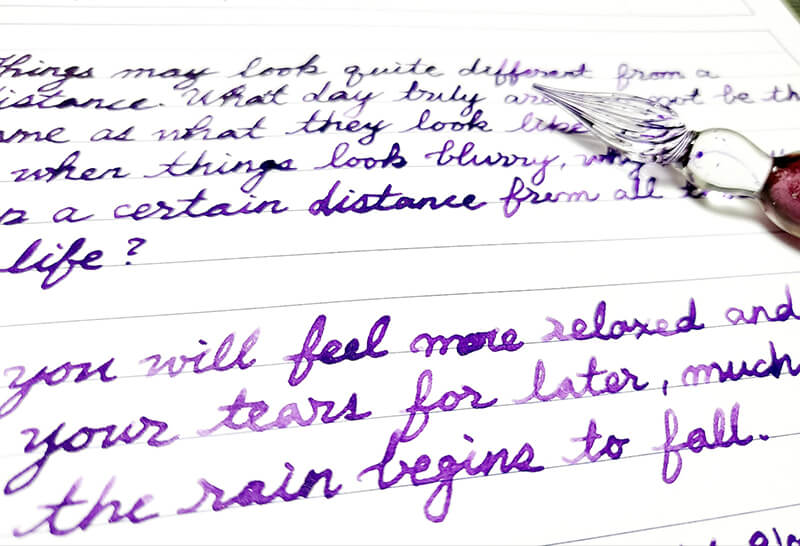 Things may look quite different from a
distance. What day truly are not be th
ame as what they look like
when things look blurry, why
p a certain distance from all
life?
you will feel more relaxed and
your tears for later, much
the rain begins to fall.